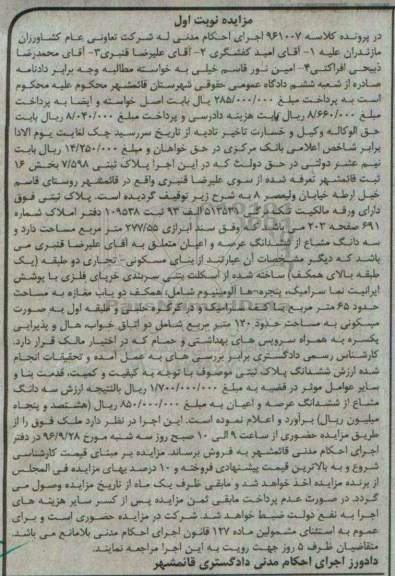 مزایده نوبت اول
در پرونده کلاسه ۹۶۱۰۰۷ اجرای احکام مدنی له شرکت تعاونی عام کشاورزان
مازندران علیه ۱- آقای امید کفشگری ۲- آقای علیرضا قنبری ۳- آقای محمدرضا
ذبیحی افراکتی ۴- امین نور قاسم خیلی به خواسته مطالبه وجه برابر دادنامه
صادره از شعبه ششم دادگاه عمومی حقوقی شهرستان قائمشهر محکوم علیه محکوم
است به پرداخت مبلغ ۲۸۵/۰۰۰/۰۰۰ ریال بابت اصل خواسته و ایضا به پرداخت
مبلغ ۸/۶۶۰/۰۰۰ ریال بابت هزینه دادرسی و پرداخت مبلغ ۸/۰۴۰/۰۰۰ ریال بابت
حق الوکاله وکیل و خسارت تاخیر تادیه از تاریخ سررسید چک لغایت یوم الادا
برابر شاخص اعلامی بانک مرکزی در حق خواهان و مبلغ ۱۴/۲۵۰/۰۰۰ ریال بابت
نیم عشر دولتی در حق دولت که در این اجرا پلاک ثبتی ۷/۵۹۸ بخش ۱۶
ثبت قائمشهر تعرفه شده از سوی علیرضا قنبری واقع در قائمشهر روستای قاسم
خیل ارطه خیابان ولیعصر ۸ به شرح زیر توقیف گردیده است. پلاک ثبتی فوق
دارای ورقه مالکیت تک برگی ۵۱۳۵۳۱ الف ۹۳ ثبت ۱۰۹۵۳۸ دفتر املاک شماره
۶۹۱ صفحه ۲۰۳ می باشد. وفق سند ابرازی ۲۷۷/۵۵ متر مربع مساحت دارد و
سه دانگ مشاع از ششدانگ عرصه و اعیان متعلق به آقای علیرضا قنبری می
باشد که دیگر مشخصات آن عبارتند از بنای مسکونی- تجاری دو طبقه (یک
طبقه بالای همکف) ساخته شده از اسکلت بتنی سربندی خرپای فلزی با پوشش
ایرانیت نما سرامیک، پنجره ها آلومینیوم شامل: همکف دو باب مغازه به مساحت
حدود ۶۵ متر مربع با کف سرامیک و در کرکره طبقه اول به صورت
مسکونی به مساحت حدود ۱۲۰ متر مربع شامل دو اتاق خواب، هال و پذیرایی
یکسره به همراه سرویس های بهداشتی و حمام که در اختیار مالک قرار دارد.
کارشناس رسمی دادگستری برابر بررسی های به عمل آمده و تحقیقات انجام
شده ارزش ششدانگ پلاک ثبتی موصوف با توجه به کیفیت و کمیت، قدمت بنا و
سایر عوامل موثر در قضیه به مبلغ ۱/۷۰۰/۰۰۰/۰۰۰ ریال بالنتیجه ارزش سه دانگ
مشاع از ششدانگ عرصه و اعیان به مبلغ ۸۵۰/۰۰۰/۰۰۰ ریال (هشتصد و پنجاه
میلیون ریال) برآورد و اعلام نموده است. این اجرا در نظر دارد ملک فوق را از
طریق مزایده حضوری از ساعت ۹ الی ۱۰ صبح روز سه شنبه مورخ ۹۶/۹/۲۸ در دفتر
اجرای احکام مدنی قائمشهر به فروش برساند. مزایده بر مبنای قیمت کارشناسی
شروع و به بالاترین قیمت پیشنهادی فروخته و ۱۰ درصد بهای مزایده فی المجلس
از برنده مزایده اخذ خواهد شد و مابقی ظرف یک ماه از تاریخ مزایده وصول می
گردد. در صورت عدم پرداخت مابقی ثمن مزایده پس از کسر سایر هزینه های
اجرا به نفع دولت ضبط خواهد شد. شرکت در مزایده حضوری است و برای
عموم به استثنای مشمولین ماده ۱۲۷ قانون اجرای احکام مدنی بلامانع می باشد.
متقاضیان ظرف ۵ روز جهت رویت به این اجرا مراجعه نمایند.
دادورز اجرای احکام مدنی دادگستری قائمشهر